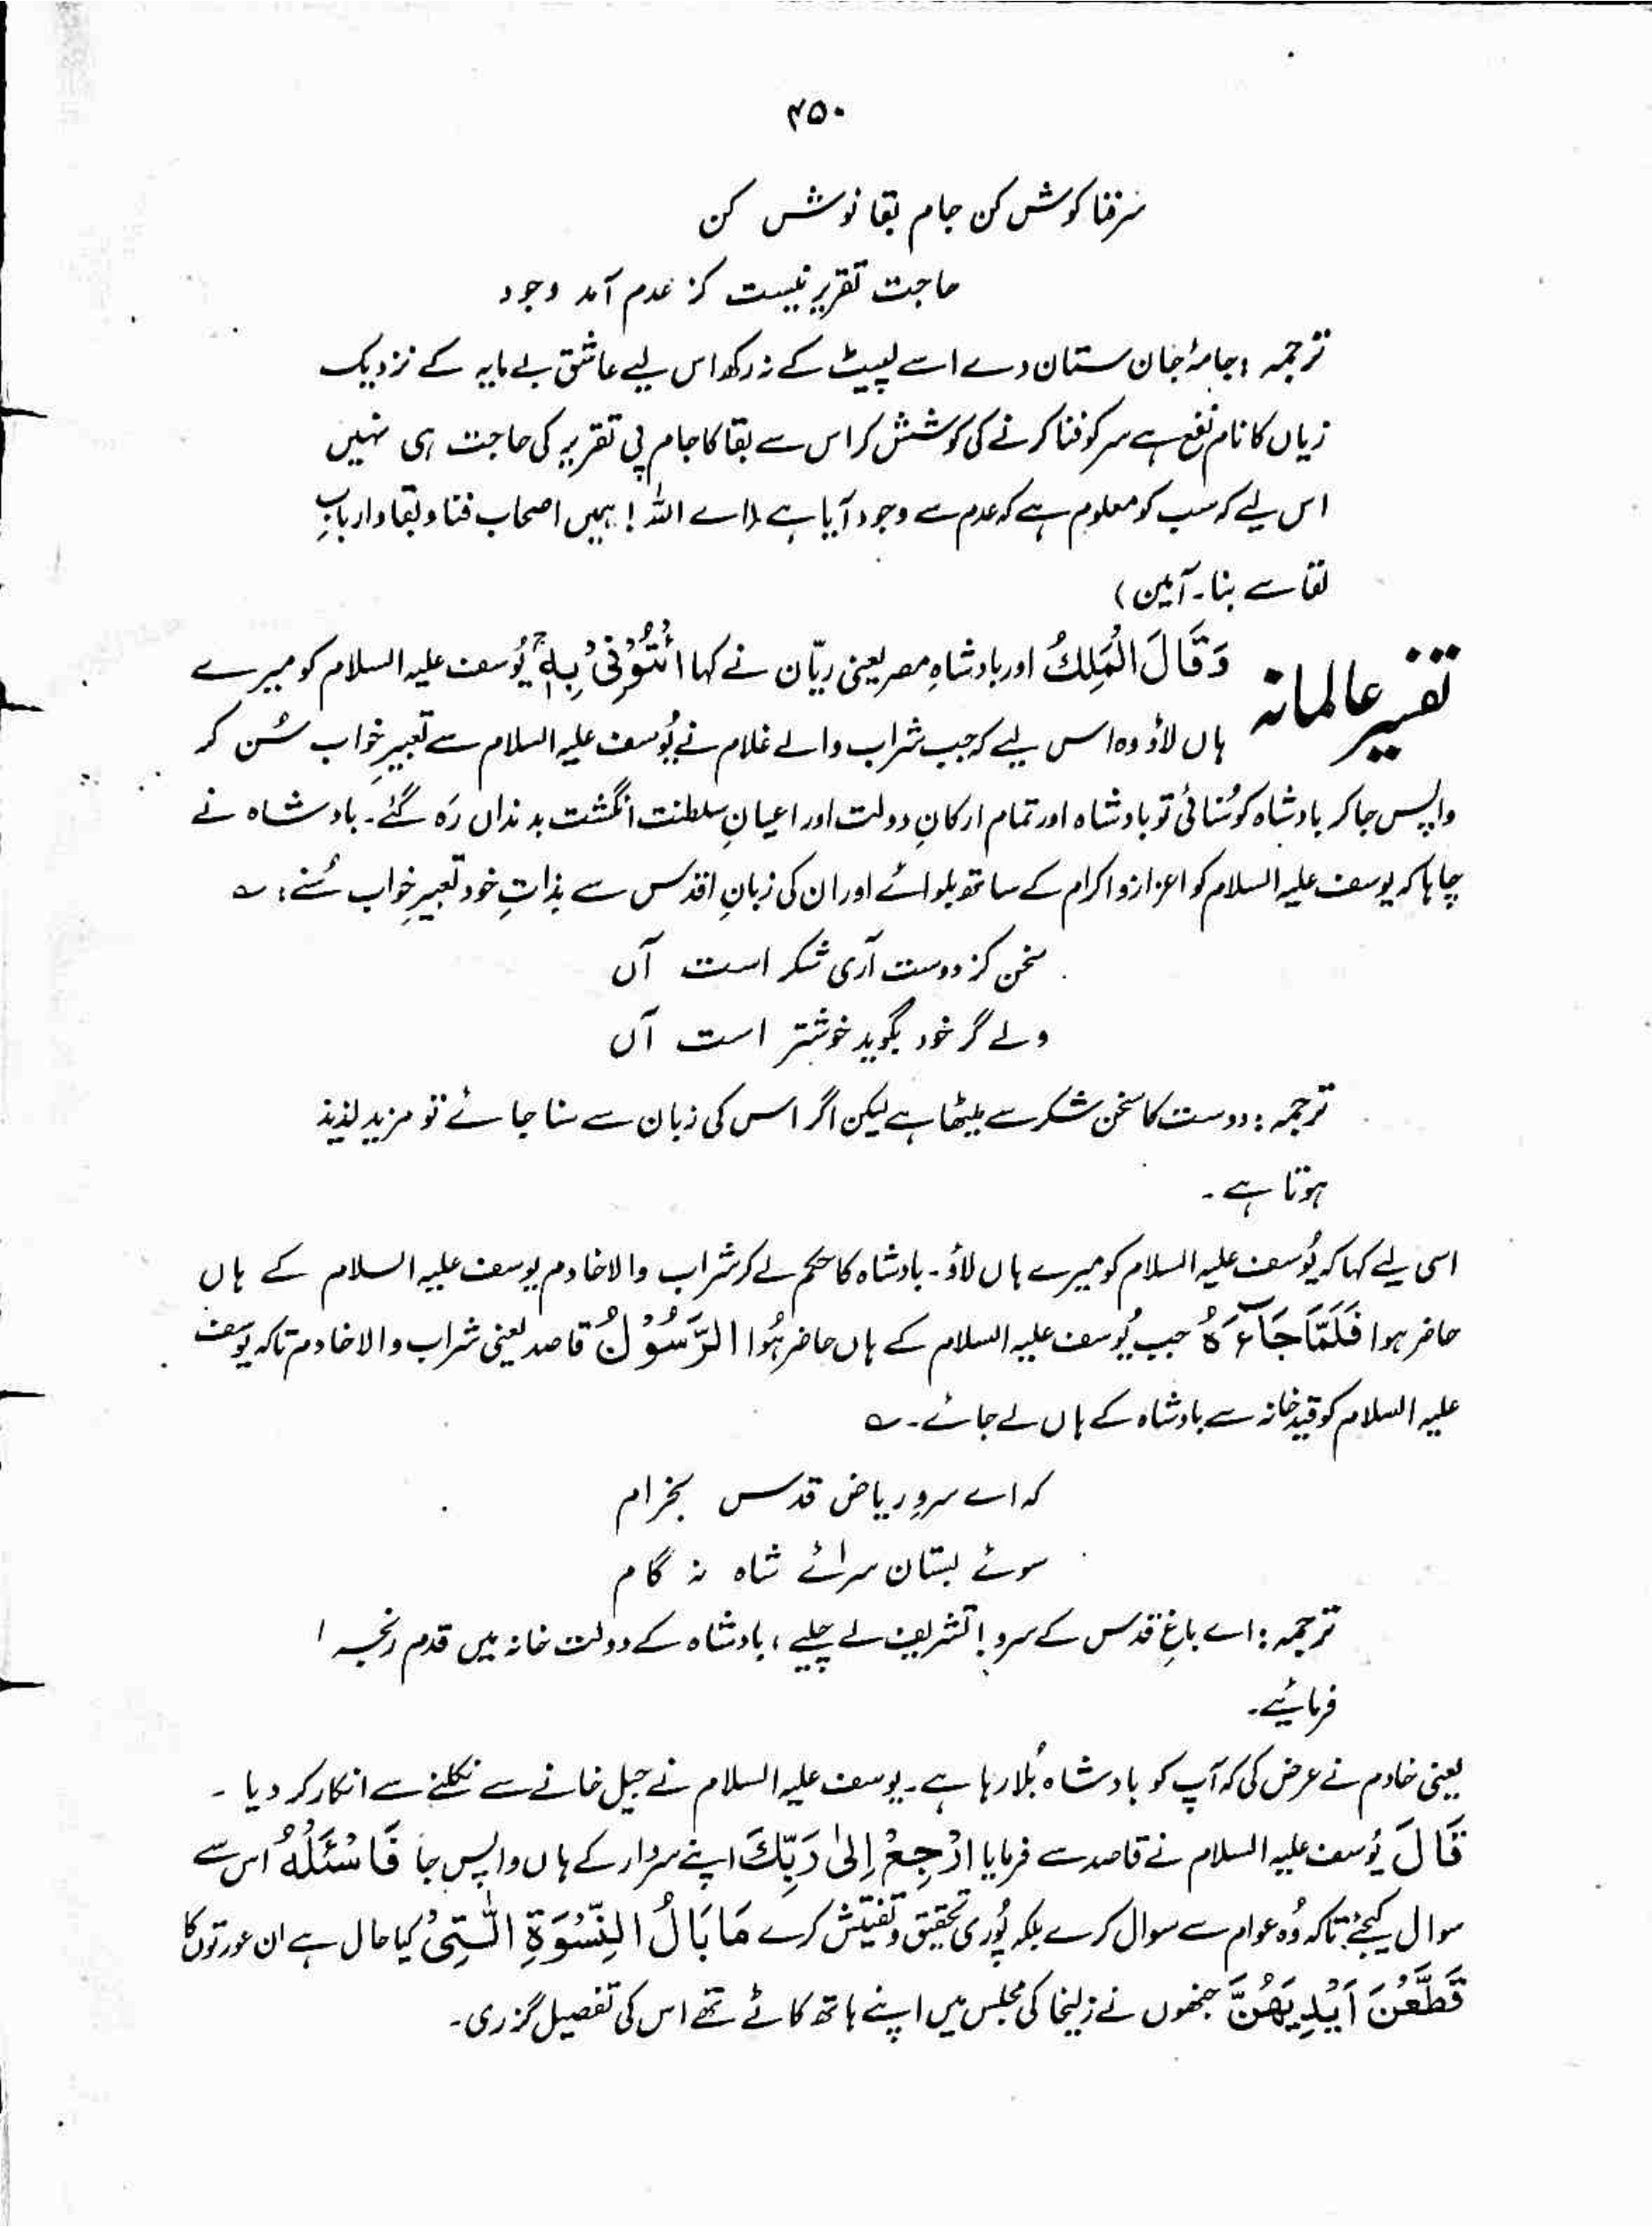 ۴۵۰
سرفنا کوش کن جام بقا نوش کن
حاجت تقریر نیست کز عدم آمد وجود
ترجمہ : جامۂ جان ستان دے اسے لپیٹ کے نہ رکھ اس لیے عاشق بے مایہ کے نزدیک
زیاں کا نام نفع ہے سر کو فنا کرنے کی کوشش کر اس سے بقا کا جام پی تقریر کی حاجت ہی نہیں
اس لیے کہ سب کو معلوم ہے کہ عدم سے وجود آیا ہے (اے اللہ ! ہمیں اصحاب فنا و بقا و اربابِ
لقا سے بنا۔ آمین)
تفسیر عالمانہ وَقَالَ الْمَلِكُ اور بادشاہِ مصر یعنی ریّان نے کہا ائْتُوْنِیْ بِہٖ ۚ یُوسف علیہ السلام کو میرے
ہاں لاؤ وہ اس لیے کہ جب شراب والے غلام نے یُوسف علیہ السلام سے تعبیرِ خواب سُن کر
واپس جا کر بادشاہ کو سُنائی تو بادشاہ اور تمام ارکانِ دولت اور اعیانِ سلطنت انگشت بدنداں رَہ گئے۔ بادشاہ نے
چاہا کہ یوسف علیہ السلام کو اعزاز و اکرام کے ساتھ بلوائے اور ان کی زبانِ اقدس سے بذاتِ خود تعبیرِ خواب سُنے : ؎
سخن کز دوست آری شکر است آں
ولے گر خود بگوید خوشتر است آں
ترجمہ : دوست کا سخن شکر سے میٹھا ہے لیکن اگر اس کی زبان سے سنا جائے تو مزید لذیذ
ہوتا ہے ۔
اسی لیے کہا کہ یُوسف علیہ السلام کو میرے ہاں لاؤ۔ بادشاہ کا حکم لے کر شراب والا خادم یوسف علیہ السلام کے ہاں
حاضر ہوا فَلَمَّا جَآءَہُ جب یُوسف علیہ السلام کے ہاں حاضر ہُوا الرَّسُوْلُ قاصد یعنی شراب والا خادم تاکہ یوسف
علیہ السلام کو قید خانہ سے بادشاہ کے ہاں لے جائے۔ ؎
کہ اے سروِ ریاض قدس بخرام
سوئے بستان سرائے شاہ نہ گام
ترجمہ : اے باغِ قدس کے سرو ! تشریف لے چلیے ، بادشاہ کے دولت خانہ میں قدم رنجہ ا
فرمائیے۔
یعنی خادم نے عرض کی کہ آپ کو بادشاہ بُلا رہا ہے۔ یوسف علیہ السلام نے جیل خانے سے نکلنے سے انکار کر دیا ۔
قَالَ یُوسف علیہ السلام نے قاصد سے فرمایا ارْجِعْ اِلٰی رَبِّكَ اپنے سردار کے ہاں واپس جا فَاسْئَلْہُ اس سے
سوال کیجئے تاکہ وُہ عوام سے سوال کرے بلکہ پُوری تحقیق و تفتیش کرے مَا بَالُ النِّسْوَةِ الّٰتِیْ کیا حال ہے ان عورتوں کا
قَطَّعْنَ اَیْدِیَھُنَّ جنھوں نے زلیخا کی مجلس میں اپنے ہاتھ کاٹے تھے اس کی تفصیل گزری۔